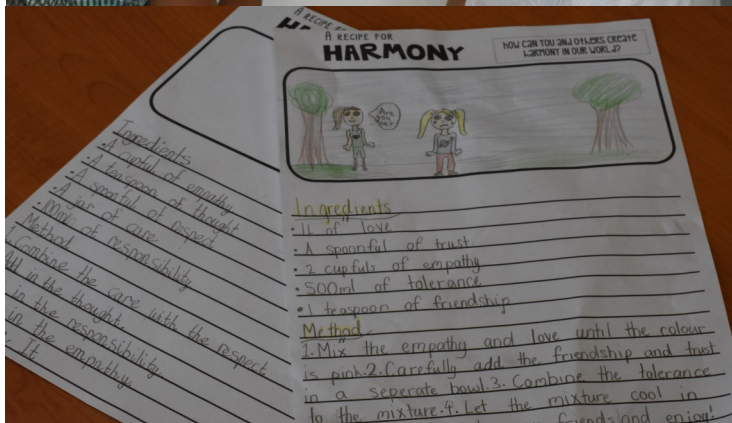 A RECIPE F
A RECIPE FOR
HARMONY
HOW CAN YOU AND OTHERS CREATE
HARMONY IN OUR WORLD?
Are
you
ok?
Ingredients
• 1L of love
• A spoonful of trust
• 2 cupfuls of empathy
• 500ml of tolerance
• 1 teaspoon of friendship
Method
1. Mix the empathy and love until the colour
is pink. 2. Carefully add the friendship and trust
in a seperate bowl. 3. Combine the tolerance
to the mixture. 4. Let the mixture cool in
friends and enjoy!
Ingredients
• A cupful of empathy
• A teaspoon of thought
• A spoonful of respect
• A jar of care
• 100ml of responsibility
Method
1. Combine the care with the respect
in the thought.
in the responsibility
in the empathy
It